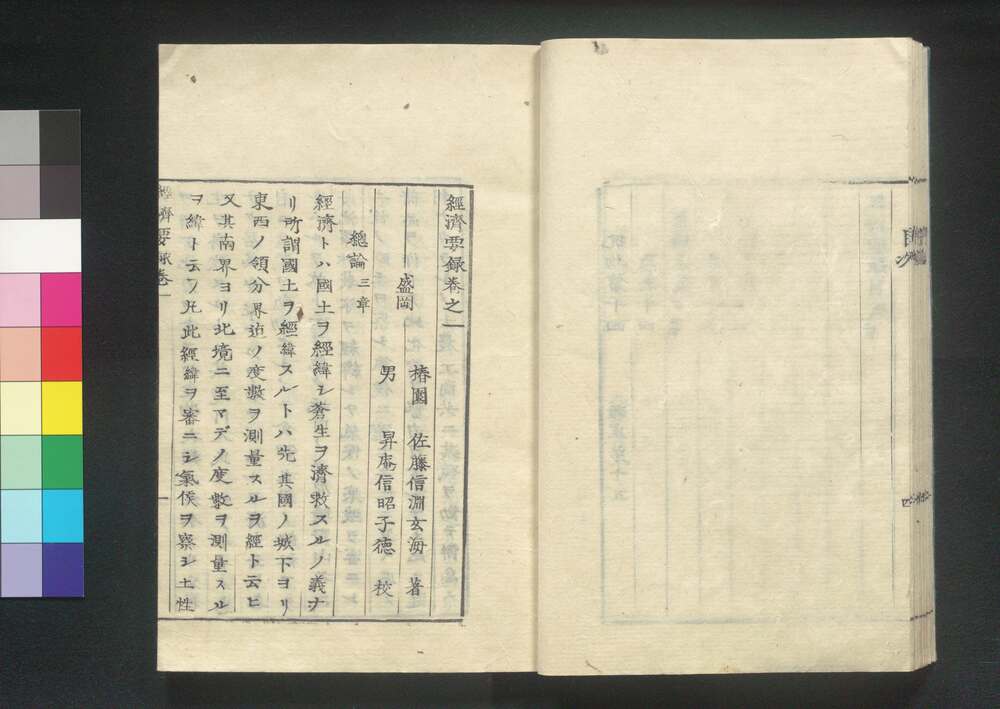 目次
四
經濟要録巻之一
盛岡
椿園 佐藤信淵玄海 著
男 昇庵信昭子徳 校
總論 三章
經濟トハ國土ヲ經緯シ蒼生ヲ濟救スルノ義ナ
リ所謂國土ヲ經緯スルトハ先其國ノ城下ヨリ
東西ノ領分界迠ノ度數ヲ測量スルヲ經ト云ヒ
又其南界ヨリ北境ニ至マデノ度數ヲ測量スル
ヲ緯ト云フ凢此經緯ヲ審ニシ氣候ヲ察シ土性
經濟要録巻一
一